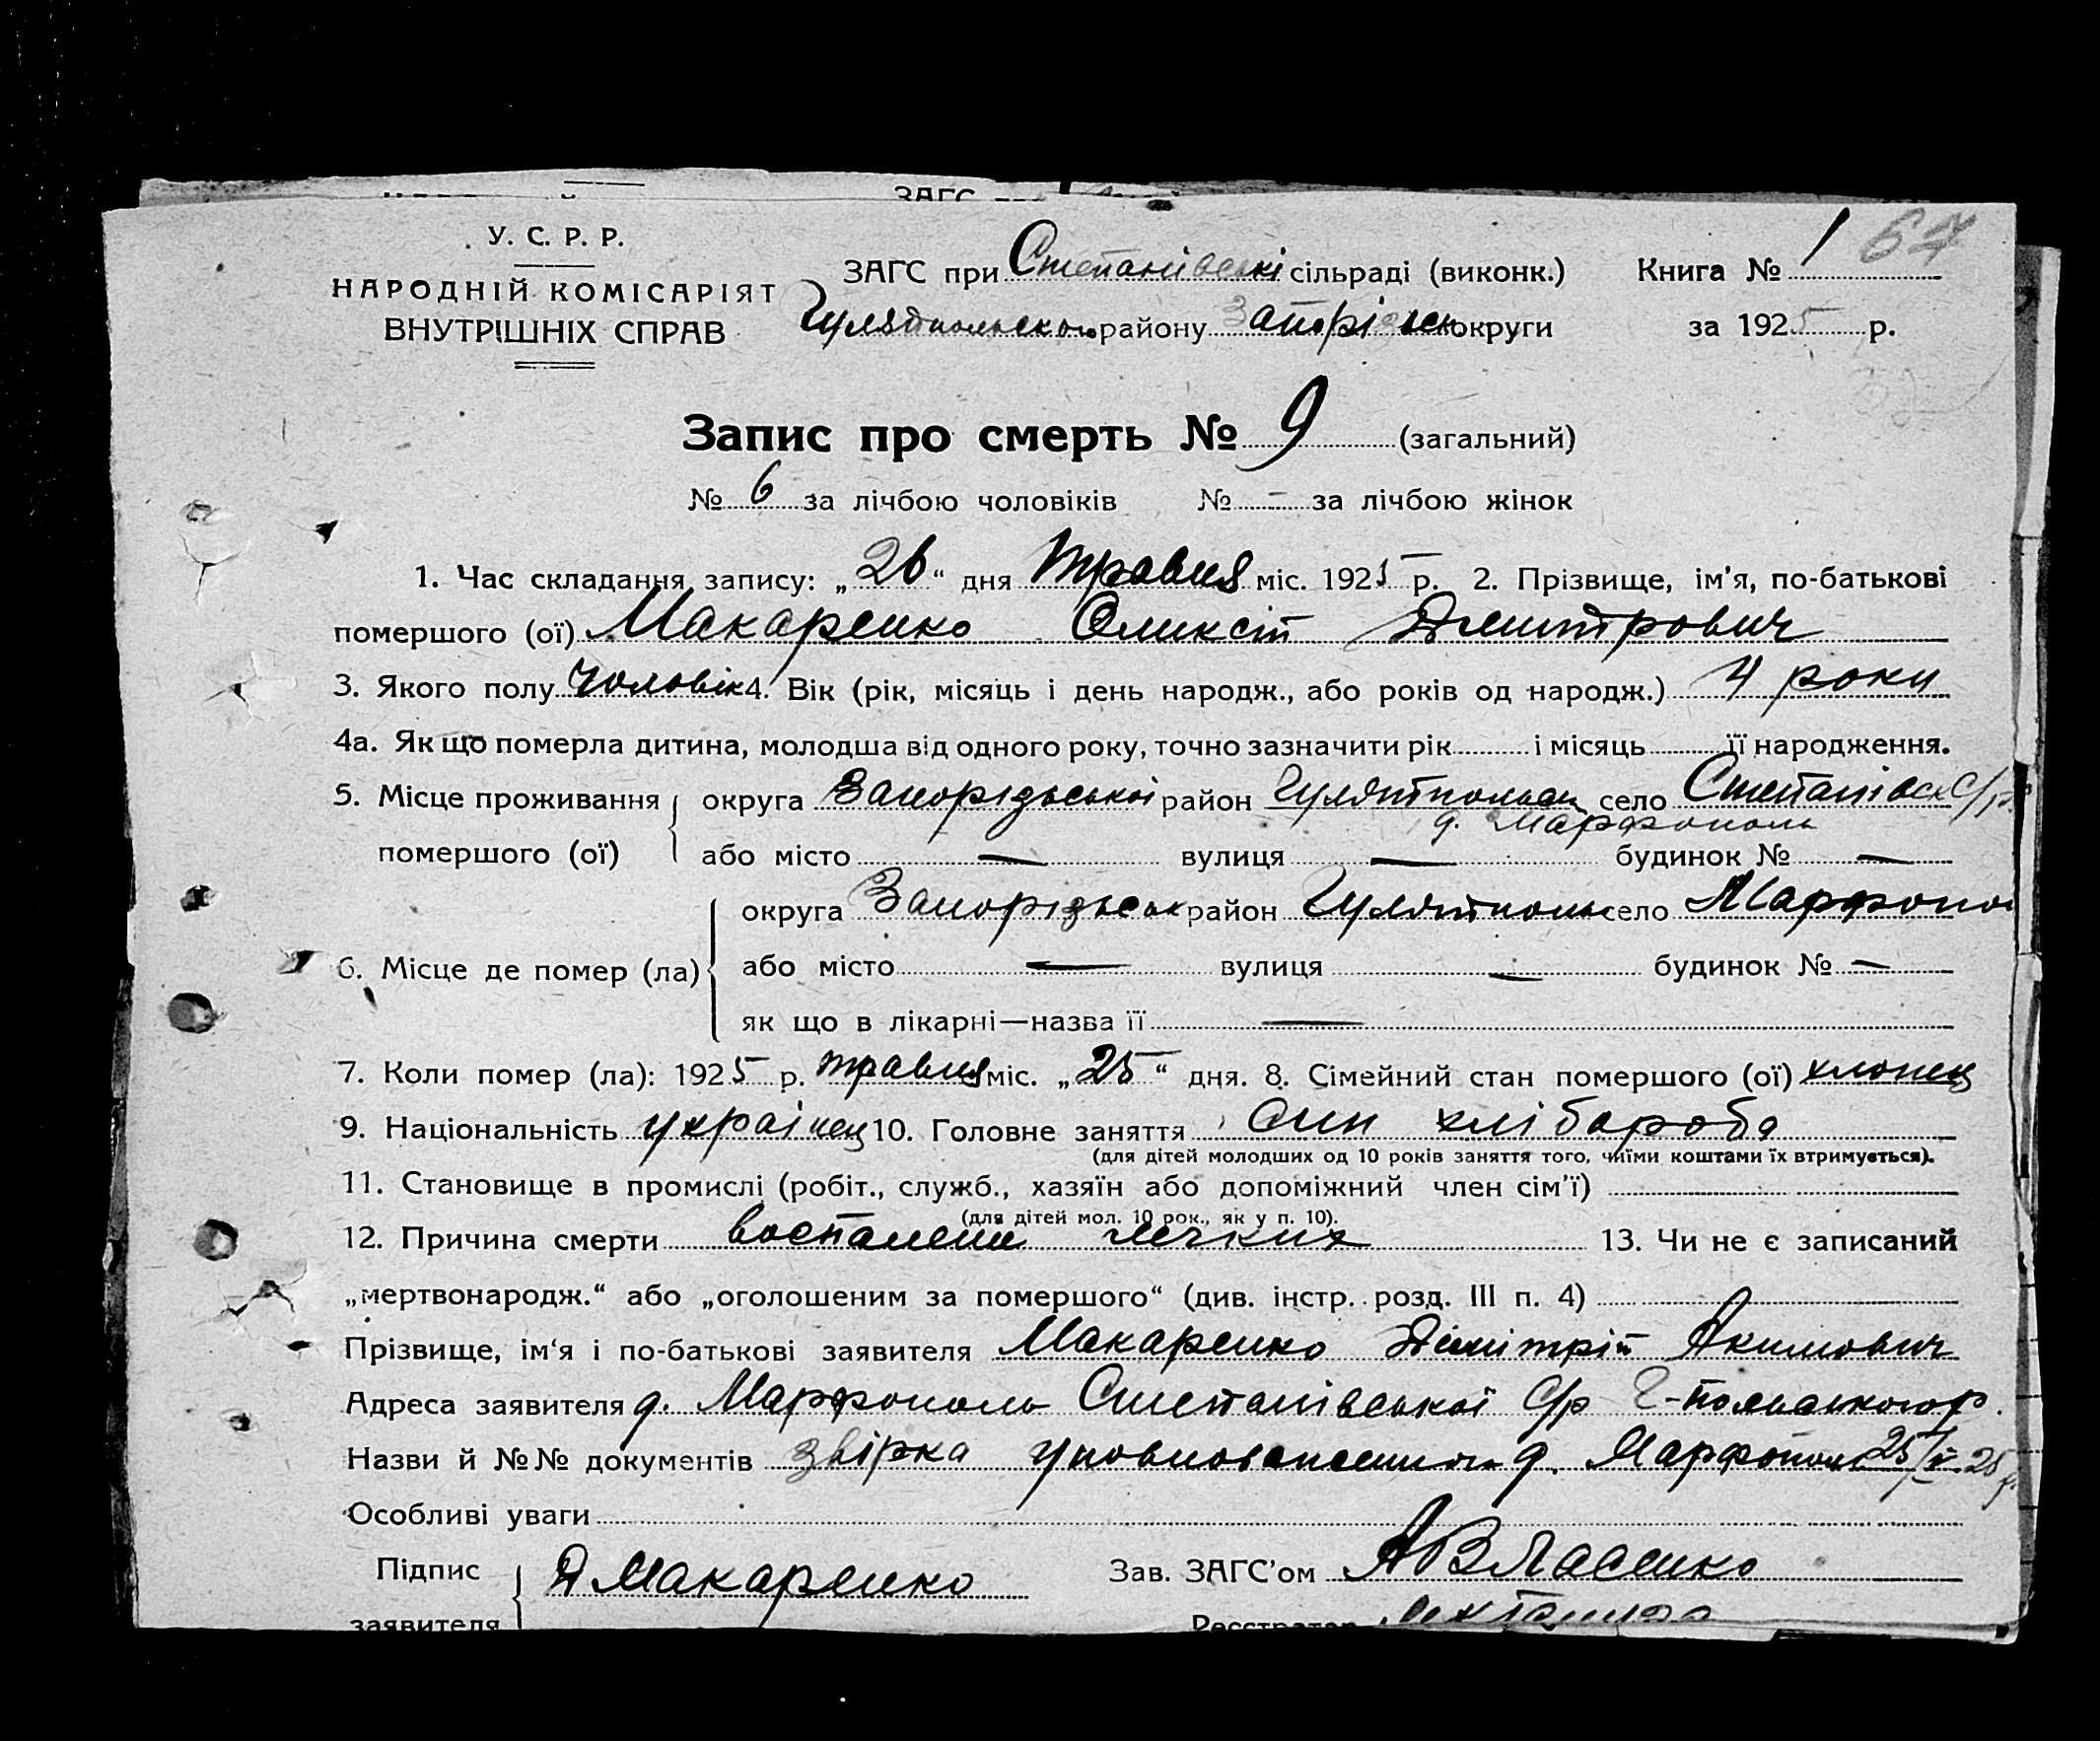 У. С. Р. Р.
НАРОДНІЙ КОМІСАРІЯТ
ВНУТРІШНІХ СПРАВ
ЗАГС при Степанівські сільраді (виконк.) Книга № 1 67
Гуляйпольского району Запорізьк округи за 1925 р.
Запис про смерть № 9 (загальний)
№ 6 за лічбою чоловіків № - за лічбою жінок
1. Час складання запису: „26“ дня травня міс. 1925 р. 2. Прізвище, ім'я, по-батькові
помершого (ої) Макаренко Оликсій Дмитрович
3. Якого полу чоловік 4. Вік (рік, місяць і день народж., або років од народж.) 4 роки
4а. Як що померла дитина, молодша від одного року, точно зазначити рік і місяць її народження.
5. Місце проживання помершого (ої) округа Запорізьської район Гуляйпольськ село Степанівськ С/р.
д. Марфополь
або місто — вулиця — будинок № —
6. Місце де помер (ла) округа Запорізьськ район Гуляйпольс село Марфопол
або місто — вулиця — будинок № —
як що в лікарні—назва її —
7. Коли помер (ла): 1925 р. травня міс. „25“ дня. 8. Сімейний стан помершого (ої) хлопець
9. Національність українец 10. Головне заняття син хлібороба
(для дітей молодших од 10 років заняття того, чиїми коштами їх втримується).
11. Становище в промислі (робіт., служб., хазяїн або допоміжний член сім'ї)
(для дітей мол. 10 рок., як у п. 10).
12. Причина смерти воспалени лечких 13. Чи не є записаний
„мертвонародж.“ або „оголошеним за помершого“ (див. інстр. розд. III п. 4)
Прізвище, ім'я і по-батькові заявителя Макаренко Дімітрій Акимович
Адреса заявителя д. Марфополь Степанівської С/р Г-польського р.
Назви й №№ документів звірка уповноваженного д. Марфополь 25/V. 25 р.
Особливі уваги
Підпис заявителя Д Макаренко Зав. ЗАГС'ом А Власенко
Реєстратор